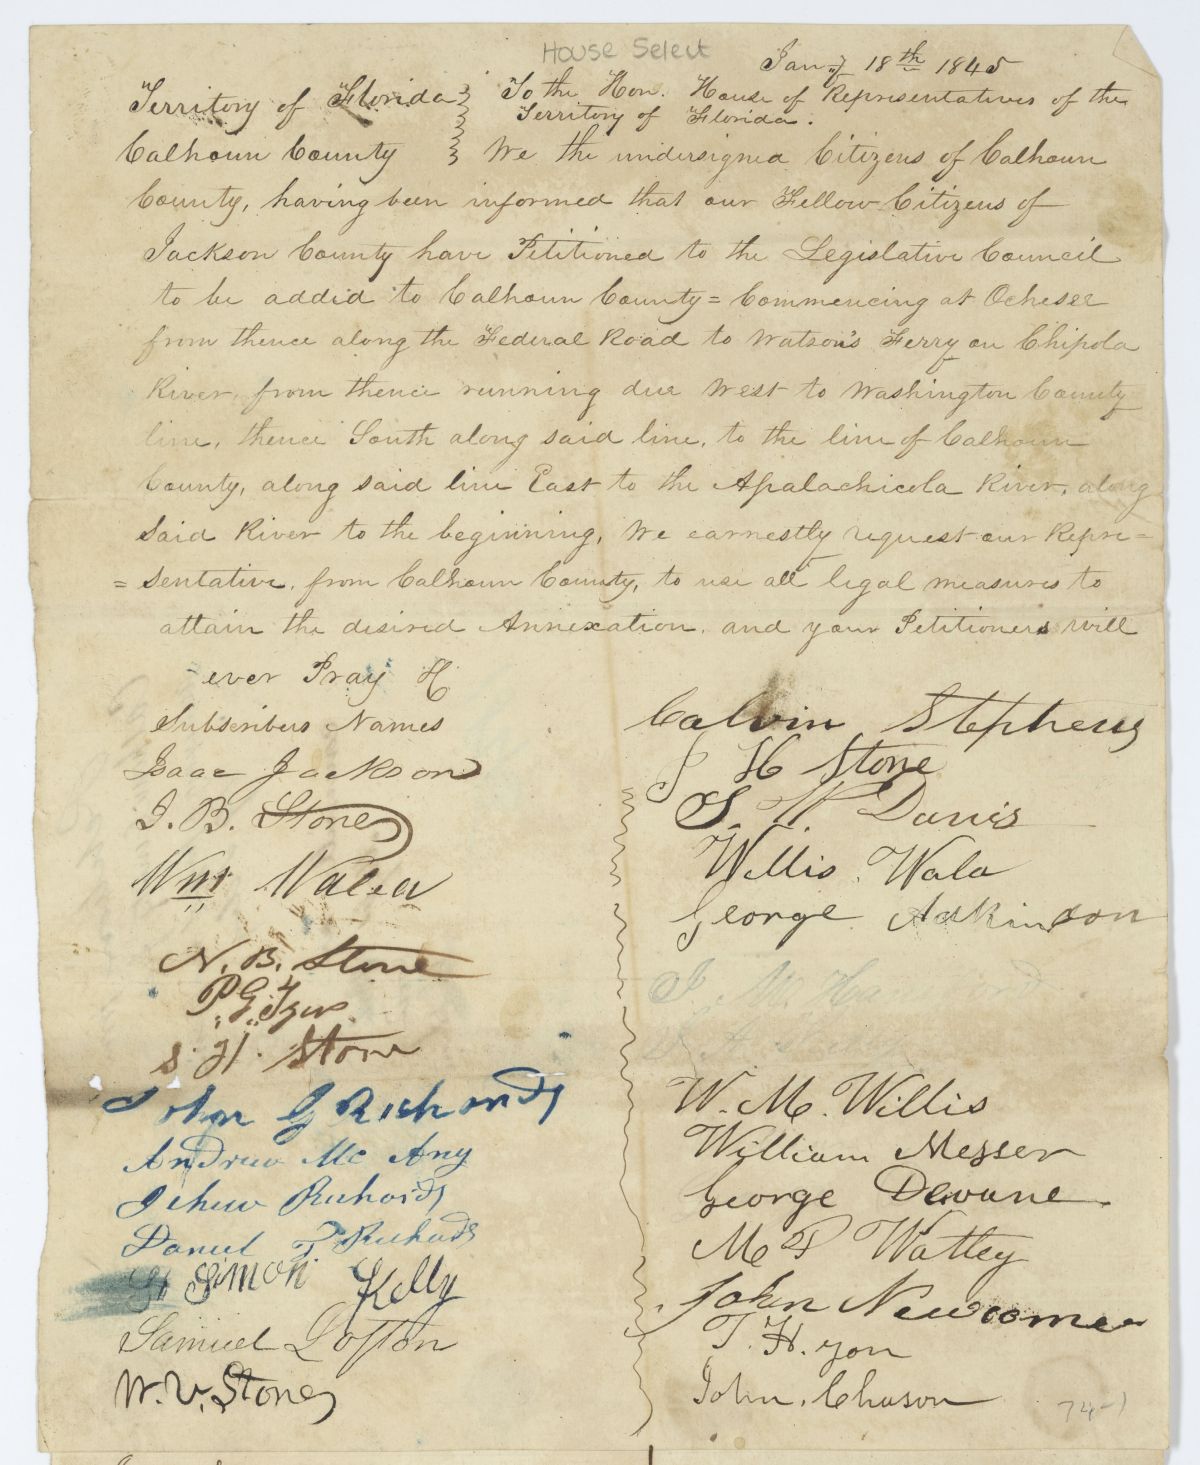 House Select
Jany 18th 1845
Territory of Florida
To the Hon. House of Representatives of the
Territory of Florida.
Calhoun County
We the undersigned Citizens of Calhoun
County, having been informed that our Fellow Citizens of
Jackson County have Petitioned to the Legislative Council
to be added to Calhoun County = Commencing at Ochesee
from thence along the Federal Road to Watson's Ferry on Chipola
River, from thence running due West to Washington County
line, thence South along said line, to the line of Calhoun
County, along said line East to the Apalachicola River, along
Said River to the beginning, We earnestly request our Repre=
=sentative, from Calhoun County, to use all legal measures to
attain the desired Annexation, and your Petitioners will
ever Pray
Subscribers Names
Isaac Jackson
J. B. Stone
Wm
N. B. Stone
P. G.
S. H. Stone
John G Richards
Andrew Mc Any
Jehew Richards
Daniel T Richards
Simon Kelly
Samuel Lofton
W. V. Stone
Calvin Stephens
J H Stone
S. W Davis
Willis Wala
George Adkinson
W. M. Willis
William Messer
George Devane
M P Watley
John Newcome
T. H. yon
John Chason
74-1